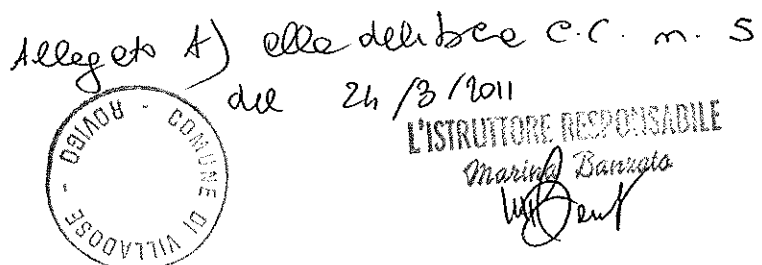 Allegato A) alla delibera C.C. n. 5
del 24/3/2011
COMUNE DI VILLADOSE - ROVIGO -
L'ISTRUTTORE RESPONSABILE
Marina Banzato